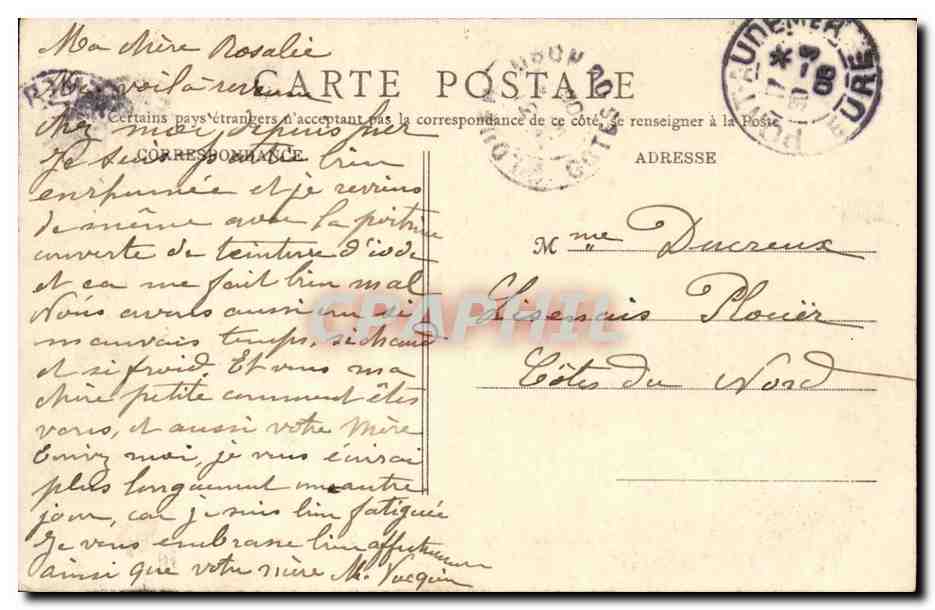 Ma chère Rosalie
Me voilà revenue
CARTE POSTALE
Certains pays étrangers n'acceptent pas la correspondance de ce côté, se renseigner à la Poste
chez moi, depuis hier
CORRESPONDANCE
Je suis bien
enrhumée et je reviens
de même avec la poitrine
couverte de teinture d'iode
et ça me fait bien mal
Nous avons aussi un si
mauvais temps, si chaud
et si froid. Et vous ma
chère petite comment êtes
vous, et aussi votre Mère
Ecrivez moi, je vous écrirai
plus longuement un autre
jour, car je suis bien fatiguée
Je vous embrasse bien affectueusement
ainsi que votre mère M.
ADRESSE
Mme Ducreux
Lisenais Plouër
Côtes du Nord
PONT-AUDEMER
EURE
08
COTES DU
CPAPHIL